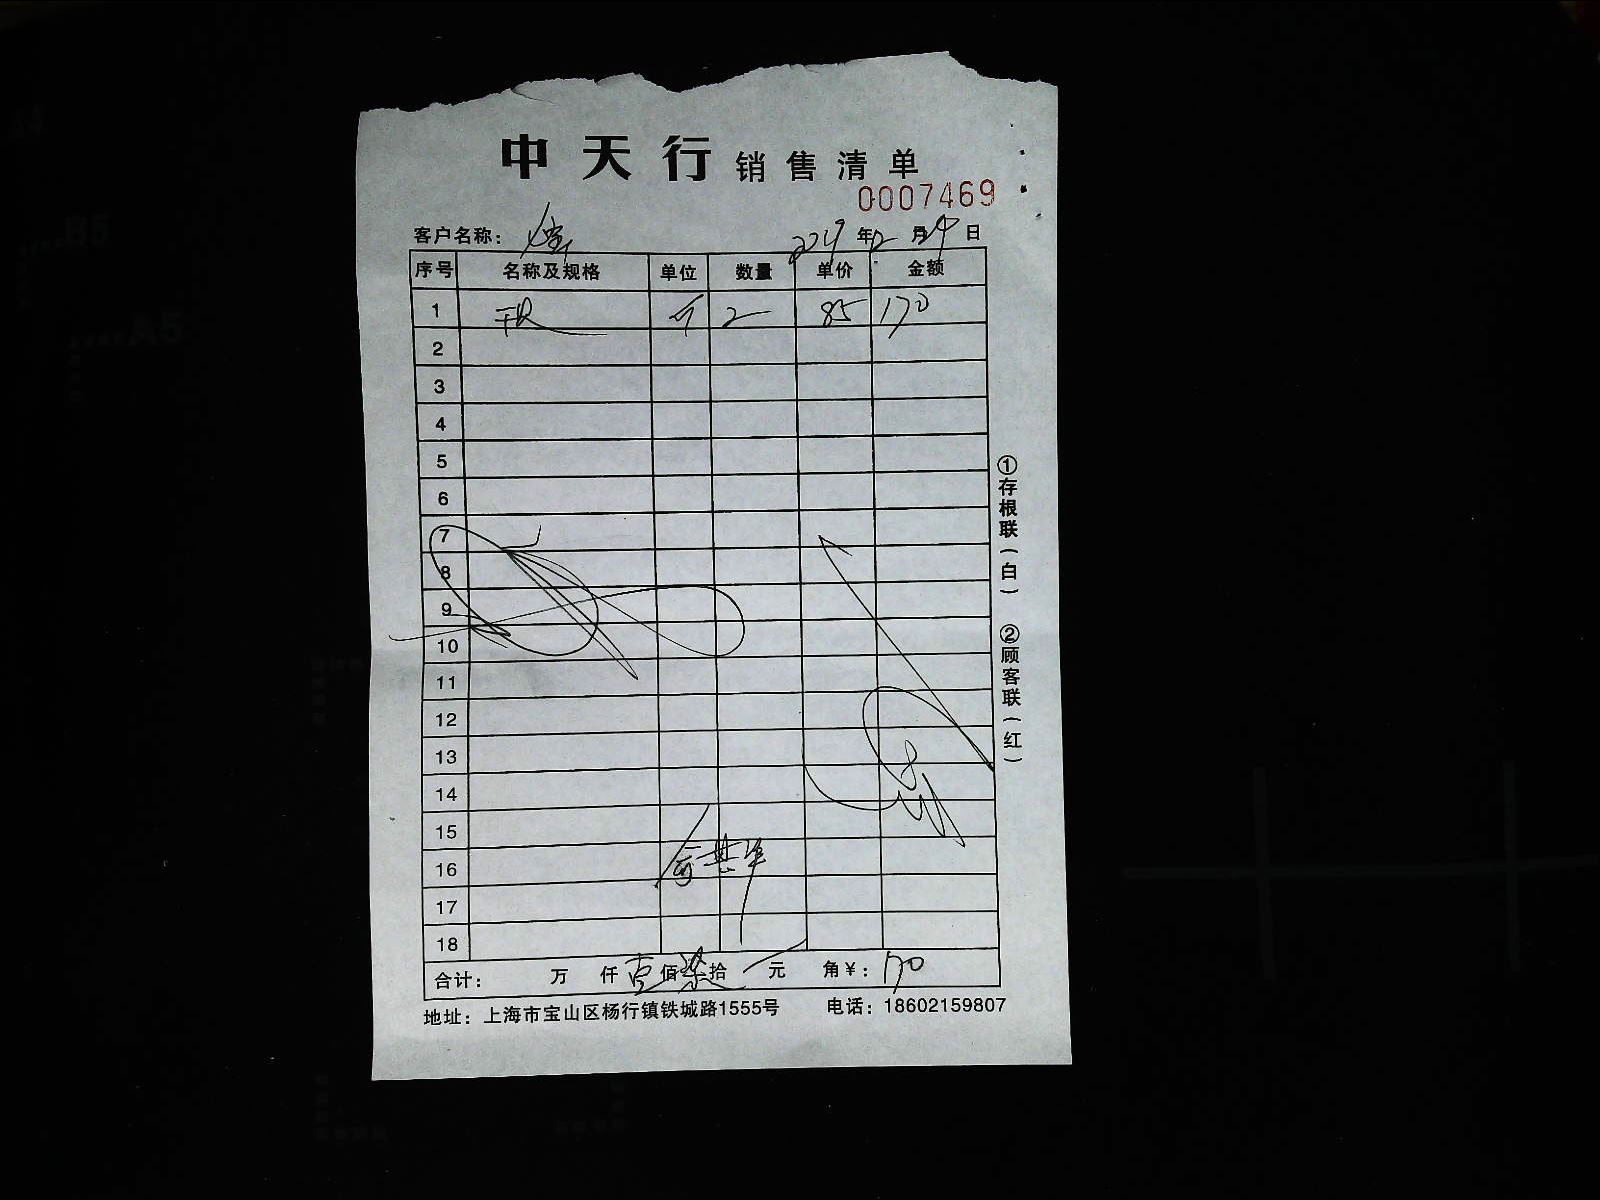 中天行 销售清单
0007469
客户名称: 2019年12月24日
序号 名称及规格 单位 数量 单价 金额
1 2 85 170
2
3
4
5
6
7
8
9
10
11
12
13
14
15
16
17
18
合计: 万 仟 壹佰 柒拾 元 角 ¥: 170
地址: 上海市宝山区杨行镇铁城路1555号 电话: 18602159807
①存根联(白) ②顾客联(红)